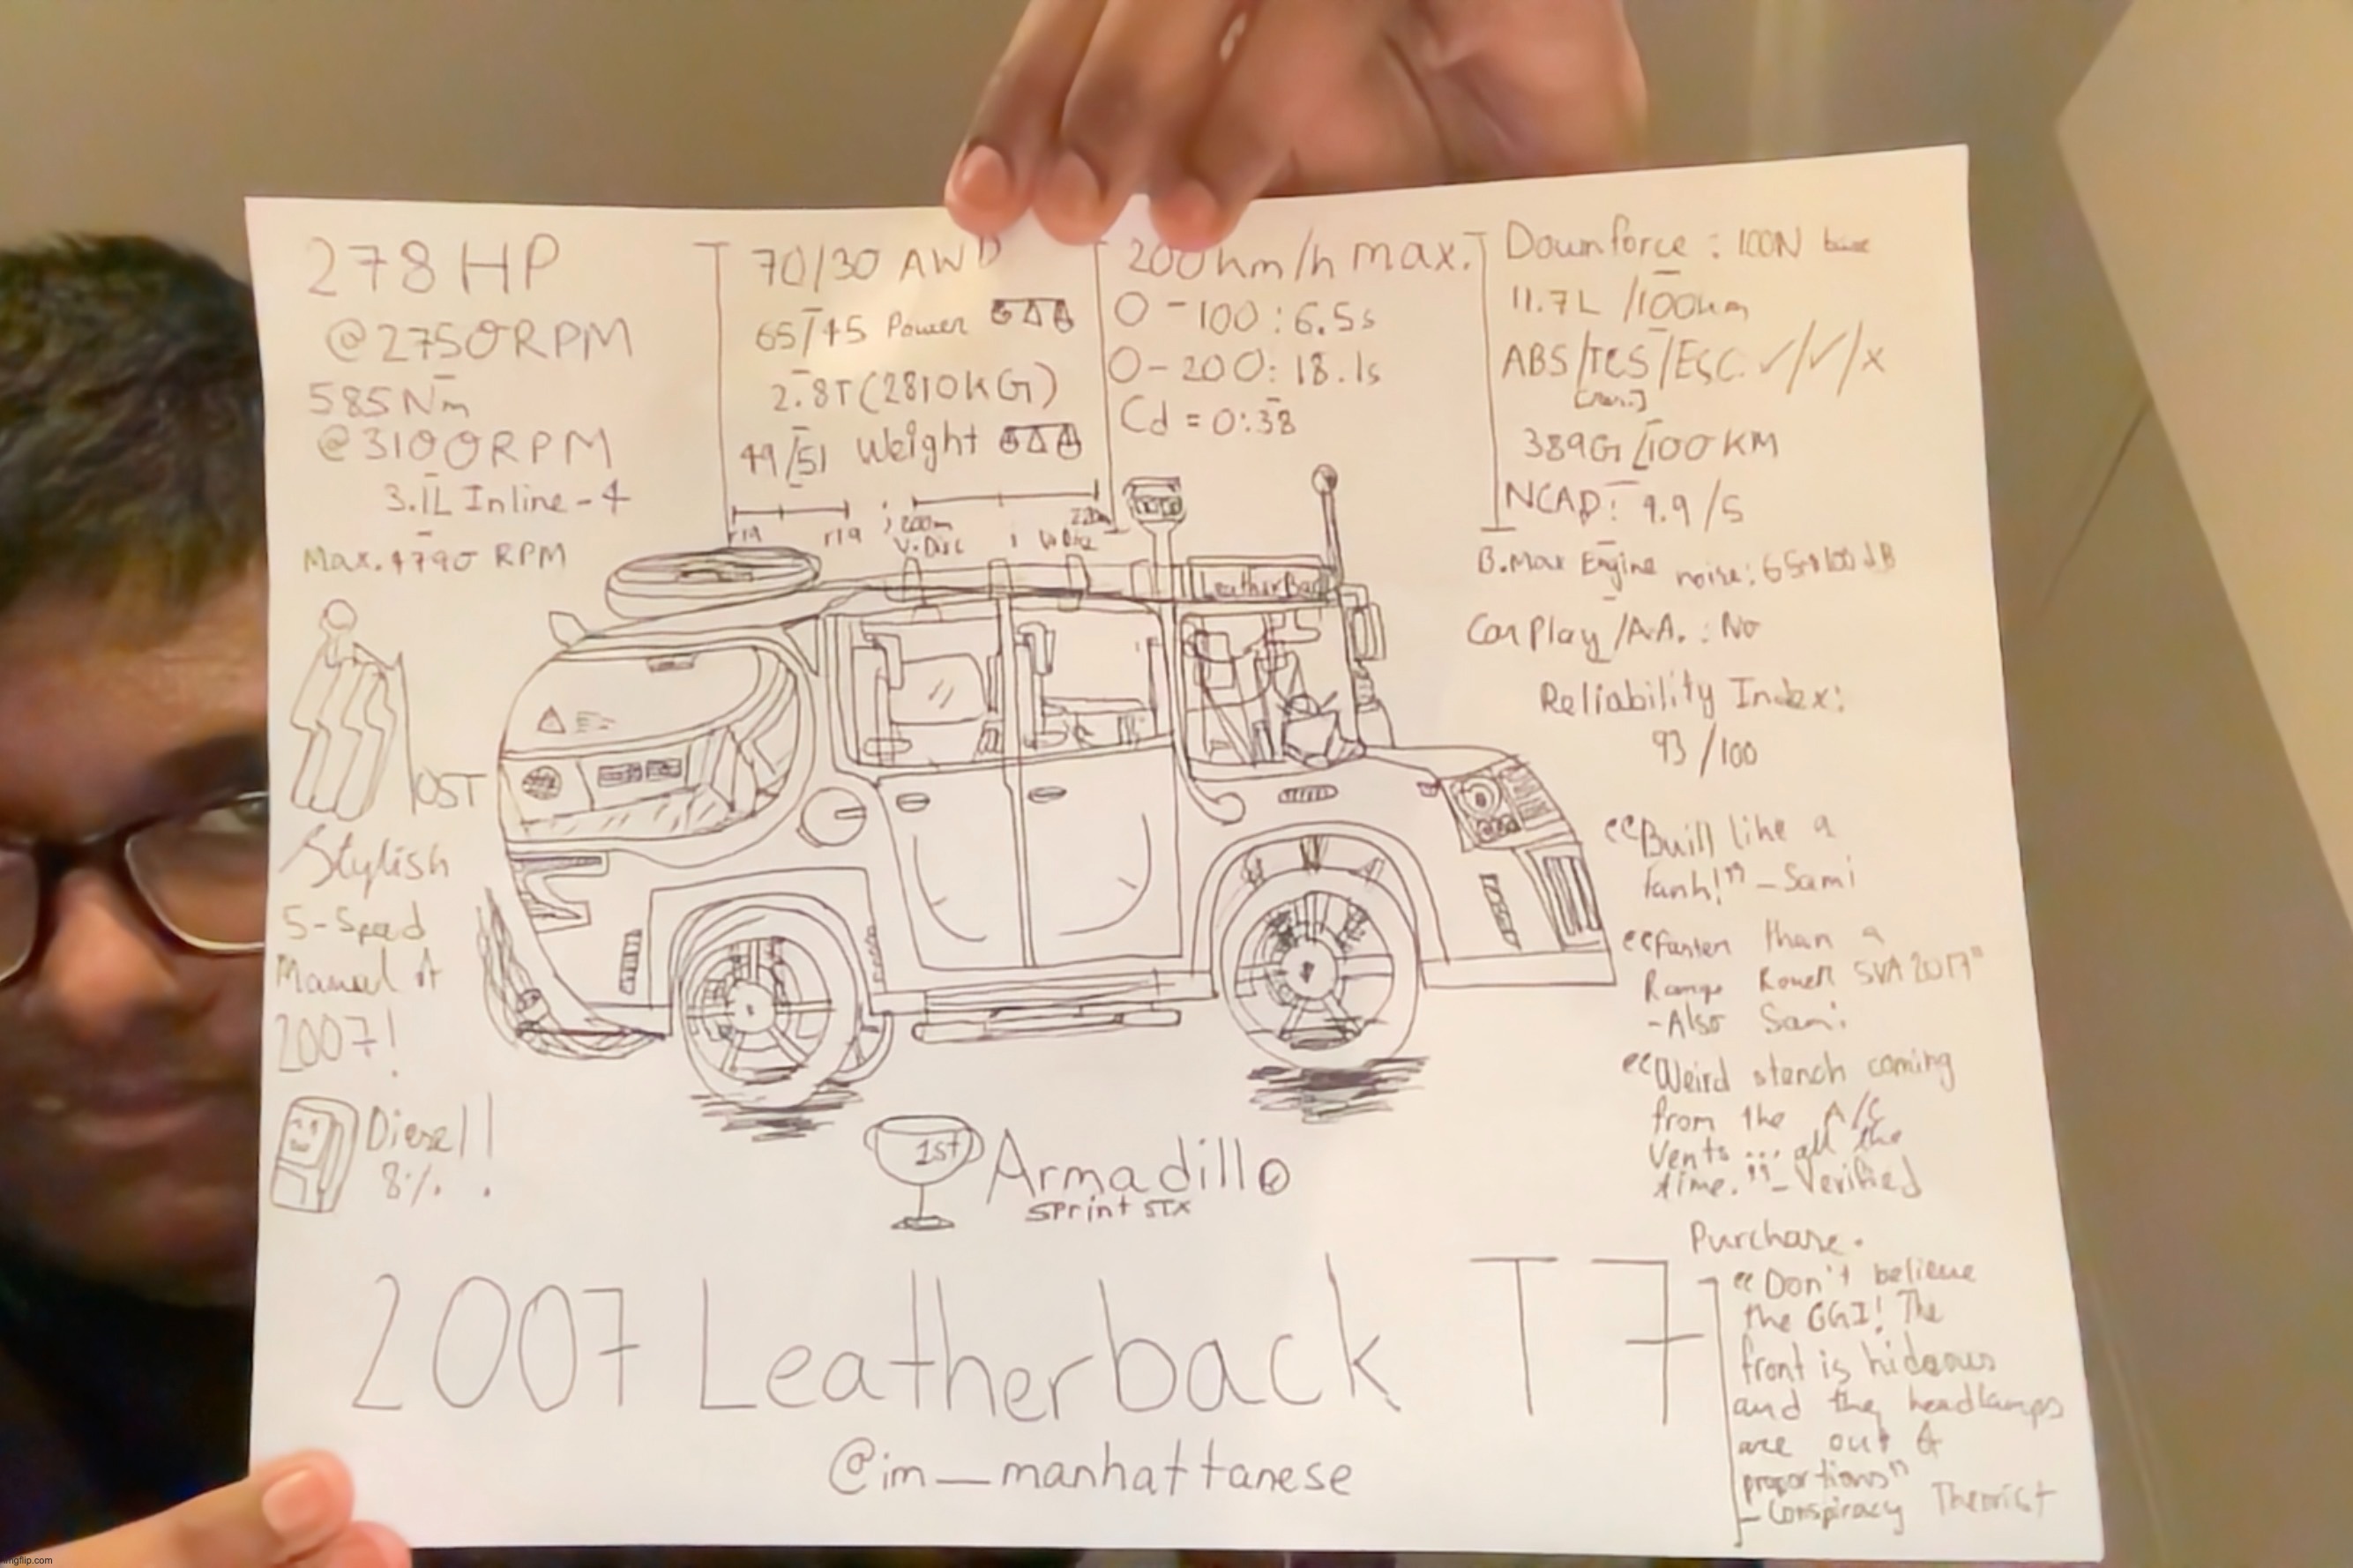 278 HP
@2750RPM
585 Nm
@3100RPM
3.1L Inline-4
Max. 4790 RPM
70/30 AWD
65/45 Power
2.8T (2810KG)
49/51 Weight
r19 r19 ; 200m
V. Disc
200km/h max.
0-100: 6.5s
0-200: 18.1s
Cd = 0:38
Downforce: 100N
11.7L /100km
ABS/TCS/ESC ✓/✓/x
389G /100 KM
NCAD: 4.9/5
B. Max Engine noise: 65→100 dB
CarPlay/A.A.: No
Reliability Index:
93/100
LeatherBack
OST
Stylish
5-Speed
Manual
2007!
Diesel!
8%.
“Built like a
tank!” - Sami
“Faster than a
Range Rover SVA 2017”
- Also Sami
“Weird stench coming
from the A/C
Vents... all the
time.” - Verified
Purchase.
“Don't believe
the GGI! The
front is hideous
and the headlamps
are out of
proportions”
- Conspiracy Theorist
1st
Armadillo
Sprint STX
2007 Leatherback T7
@im_manhattanese
imgflip.com